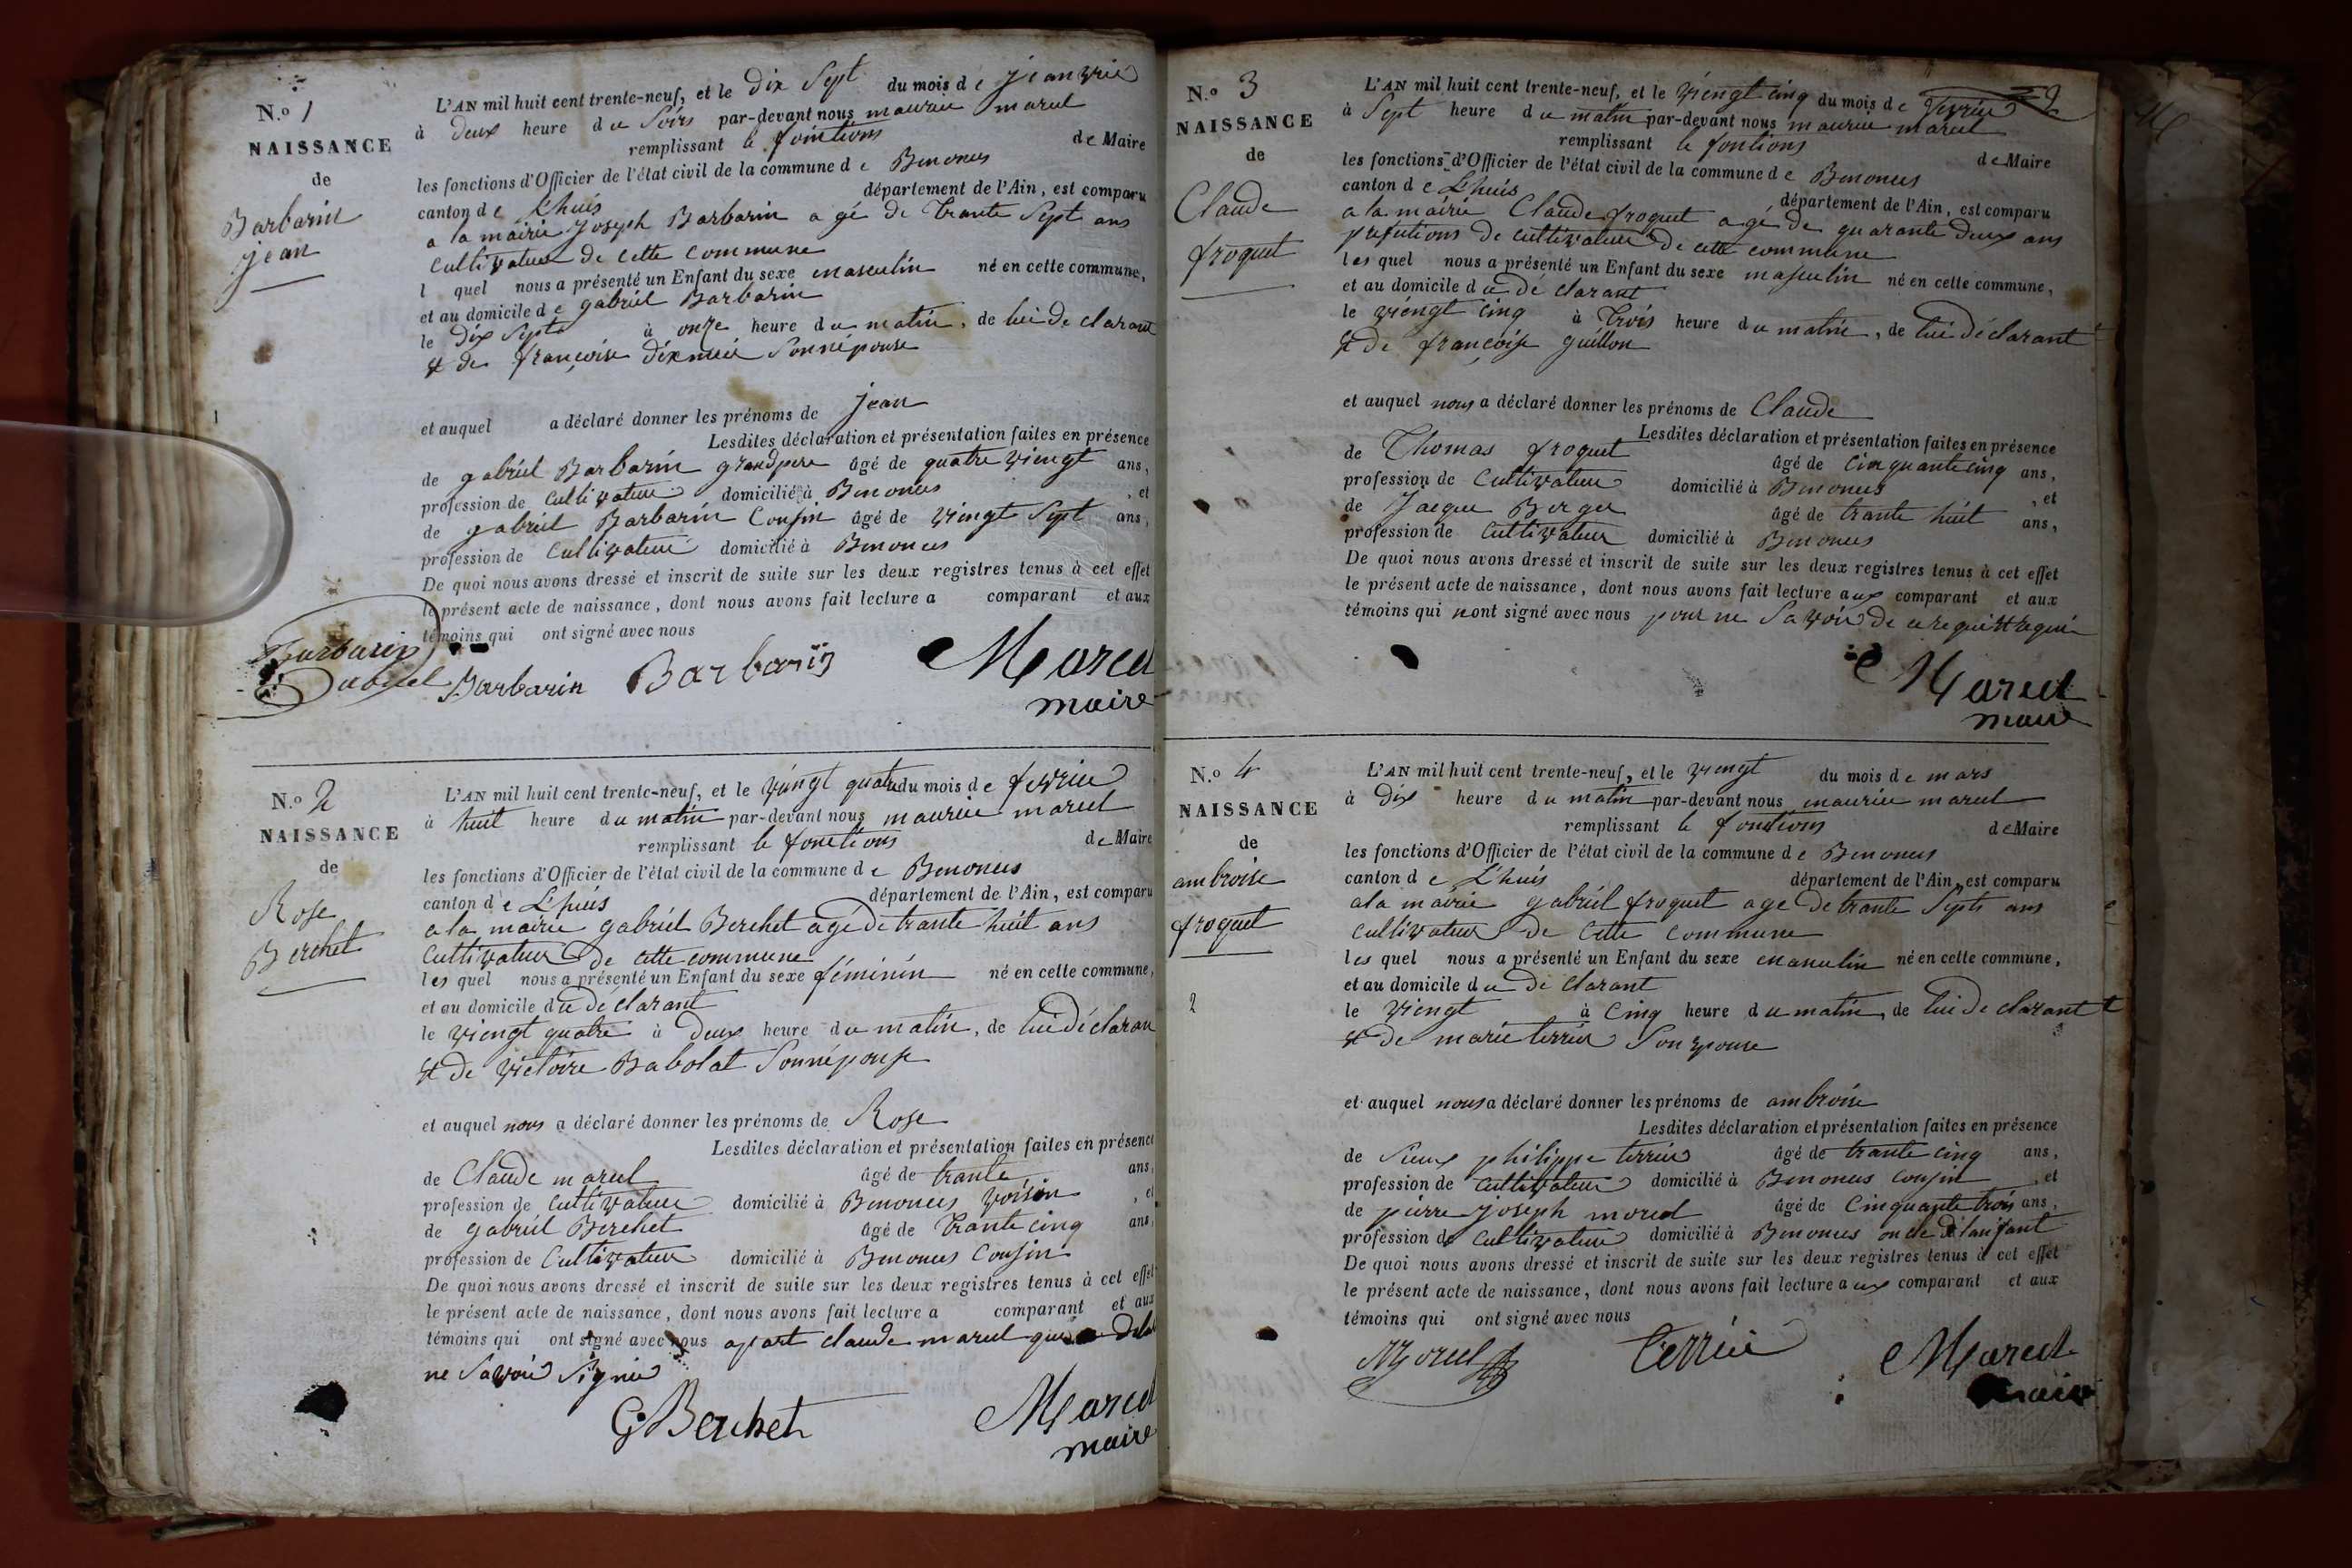 N.o 1
NAISSANCE
de
Barbarin
jean
L'AN mil huit cent trente-neuf, et le Dix Sept du mois de jeanvrié
à Deux heure du Soirs par-devant nous maurice marcel
remplissant le fontions de Maire
les fonctions d'Officier de l'état civil de la commune de Benonces
canton de Lhuis département de l'Ain, est comparu
a la mairie joseph Barbarin agé de Trante Sept ans
cultivateur de cette commune
l quel nous a présenté un Enfant du sexe masculin né en cette commune,
et au domicile de gabriel Barbarin
le Dix Septs à onze heure du matin, de lui déclarant
& de françoise Sonnépouse
et auquel a déclaré donner les prénoms de jean
Lesdites déclaration et présentation faites en présence
de gabriel Barbarin grandpere âgé de quatre viengt ans,
profession de cultivateur domicilié à Benonces , et
de gabriel Barbarin Cousin âgé de viengt Sept ans,
profession de Cultivateur domicilié à Benonces
De quoi nous avons dressé et inscrit de suite sur les deux registres tenus à cet effet
le présent acte de naissance, dont nous avons fait lecture a comparant et aux
témoins qui ont signé avec nous
Barbarin
Gabriel Barbarin Barbarin Marcel
maire
N.o 2
NAISSANCE
de
Rose
Berchet
L'AN mil huit cent trente-neuf, et le viengt quatre du mois de fevrier
à huit heure du matin par-devant nous maurice marcel
remplissant le fonctions de Maire
les fonctions d'Officier de l'état civil de la commune de Benonces
canton de L'huis département de l'Ain, est comparu
a la mairie gabriel Berchet agé de trante huit ans
Cultivateur de cette commune
les quel nous a présenté un Enfant du sexe féminin né en cette commune,
et au domicile du déclarant
le viengt quatre à Deux heure du matin, de lui déclaran
& de victoire Babolat Sonnépouse
et auquel nous a déclaré donner les prénoms de Rose
Lesdites déclaration et présentation faites en présence
de Claude marcel âgé de trante ans,
profession de cultivateur domicilié à Benonces voisin , et
de gabriel Berchet âgé de trante cinq ans,
profession de Cultivateur domicilié à Benonces Cousin
De quoi nous avons dressé et inscrit de suite sur les deux registres tenus à cet effet
le présent acte de naissance, dont nous avons fait lecture a comparant et aux
témoins qui ont signé avec nous apart claude marcel qui
ne Savoir Signier
G Berchet Marcel
maire
2
N.o 3
NAISSANCE
de
Claude
froquet
L'AN mil huit cent trente-neuf, et le viengt cinq du mois de fevrier
à Sept heure du matin par-devant nous maurice marcel
remplissant le fontions de Maire
les fonctions d'Officier de l'état civil de la commune de Benonces
canton de L'huis département de l'Ain, est comparu
a la mairie Claude froquet agé de quarante deux ans
de cultivateur de cette commune
les quel nous a présenté un Enfant du sexe masculin né en cette commune,
et au domicile du déclarant
le viengt cinq à trois heure du matin, de lui déclarant
& de françoise guillon
et auquel nous a déclaré donner les prénoms de Claude
Lesdites déclaration et présentation faites en présence
de Thomas froquet âgé de cinquante cinq ans,
profession de Cultivateur domicilié à Benonces , et
de Jacque Berger âgé de trante huit ans,
profession de Cultivateur domicilié à Benonces
De quoi nous avons dressé et inscrit de suite sur les deux registres tenus à cet effet
le présent acte de naissance, dont nous avons fait lecture aux comparant et aux
témoins qui nont signé avec nous pour ne Savoir de ce
Marcel
maire
N.o 4
NAISSANCE
de
ambroise
froquet
2
L'AN mil huit cent trente-neuf, et le viengt du mois de mars
à Dix heure du matin par-devant nous maurice marcel
remplissant le fontions de Maire
les fonctions d'Officier de l'état civil de la commune de Benonces
canton de L'huis département de l'Ain, est comparu
a la mairie gabriel froquet age de trante Septs ans
cultivateur de cette commune
les quel nous a présenté un Enfant du sexe masculin né en cette commune,
et au domicile du déclarant
le viengt à Cinq heure du matin, de lui déclarant
& de marie terrier Son epouse
et auquel nous a déclaré donner les prénoms de ambroise
Lesdites déclaration et présentation faites en présence
de Sieur philippe terrier âgé de trante cinq ans,
profession de cultivateur domicilié à Benonces cousin , et
de pierre joseph morel âgé de Cinquante trois ans,
profession de cultivateur domicilié à Benonces oncle de lanfant
De quoi nous avons dressé et inscrit de suite sur les deux registres tenus à cet effet
le présent acte de naissance, dont nous avons fait lecture aux comparant et aux
témoins qui ont signé avec nous
Morel Terrier Marcel
maire